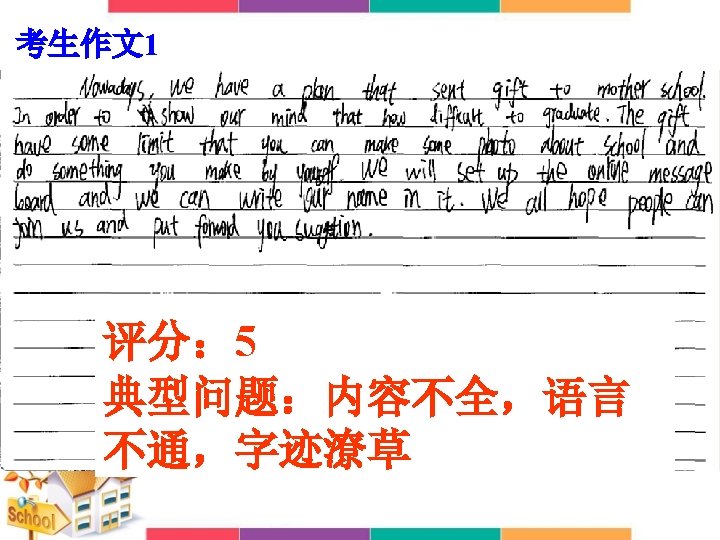 考生作文1
Nowadays, we have a plan that sent gift to mother school.
In order to show our mind that how difficult to graduate. The gift
have some limit that you can make some photo about school and
do something you make by yourself. We will set up the online message
board and we can write our name in it. We all hope people can
join us and put forword you suggestion.
评分：5
典型问题：内容不全，语言
不通，字迹潦草
School